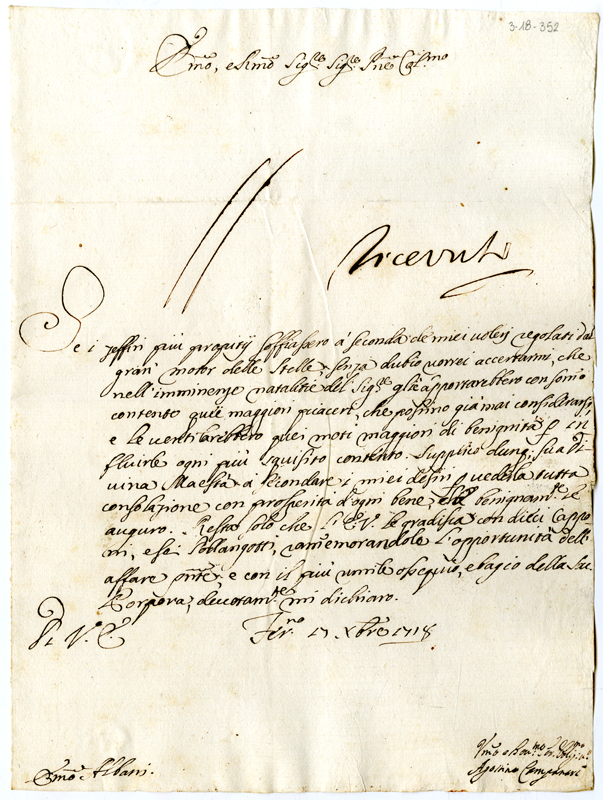 3-18-352
Emo, e Rmo Sigre Sigre Pne Colmo
Ricevuto
Se i zeffiri più propitij soffiassero à seconda de miei voleri regolati dal
gran motor delle Stelle, senza dubio vorrei accertarmi, che
nell'imminenze natalitie del Sigre gl'apportarebbero con sommo
contento quei maggiori piaceri, che possino già mai considerarsi,
e le ventilarebbero quei moti maggiori di benignità p in
fluirle ogni più squisito contento. Supplico dunq; sua Di
vina Maestà à secondare i miei desiri p vederla tutta
consolatione con prosperità d'ogni bene, benignamte
auguro. Resta solo che l'E.V. le gradisca con dieci Cappo
ni, e sei Pollangotti, ramemorandole l'opportunità dell'
affare pnte, e con il più umile ossequio, e bagio della Sac
Porpora, devotamte mi dichiaro.
Di V. E.
Fermo 17 Xbre 1718
Emo Albani.
Vmo e Devmo Ser Obligmo
Agostino